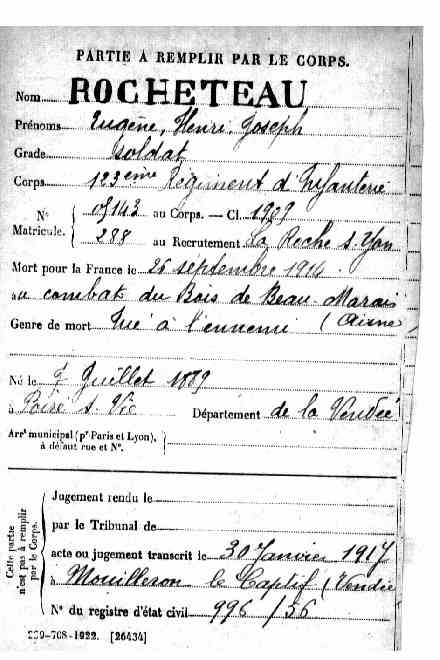 PARTIE À REMPLIR PAR LE CORPS.
Nom ROCHETEAU
Prénoms Eugène, Henri, Joseph
Grade Soldat
Corps 123ème Régiment d'Infanterie
N° Matricule. { 05143 au Corps. — Cl. 1909
288 au Recrutement La Roche s. Yon
Mort pour la France le 26 septembre 1914
au combat du Bois de Beau-Marais
Genre de mort Tué à l'ennemi (Aisne)
Né le 7 Juillet 1889
à Poiré s. Vie Département de la Vendée
Arrt municipal (pr Paris et Lyon),
à défaut rue et N°.
Cette partie n'est pas à remplir par le Corps.
Jugement rendu le
par le Tribunal de
acte ou jugement transcrit le 30 Janvier 1917
à Mouilleron le Captif (Vendée
N° du registre d'état civil 996/56
-708-1922. [26434]